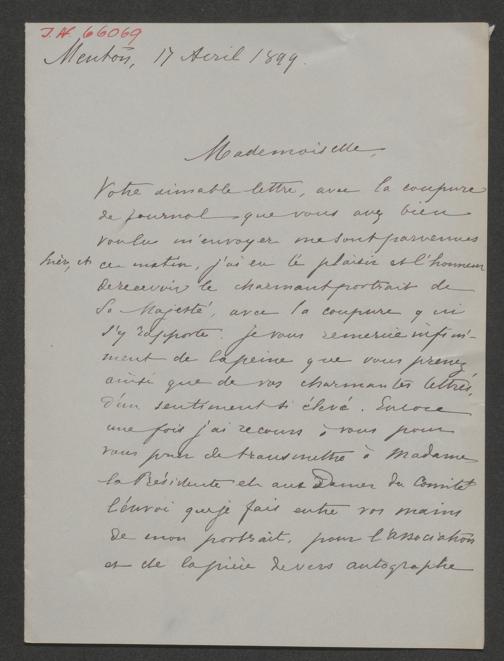 J.H 66069
Menton, 17 Avril 1899.
Mademoiselle,
Votre aimable lettre, avec la coupure
de journal que vous avez bien
voulu m'envoyer me sont parvenues
hier, et ce matin, j'ai eu le plaisir et l'honneur
de recevoir le charmant portrait de
Sa Majesté, avec la coupure qui
s'y rapporte. Je vous remercie infini-
ment de la peine que vous prenez
ainsi que de vos charmantes lettres,
d'un sentiment si élevé. Encore
une fois j'ai recours à vous pour
vous prier de transmettre à Madame
la Présidente et aux Dames du Comité
l'envoi que je fais entre vos mains
de mon portrait, pour l'association
et de la pièce de vers autographe